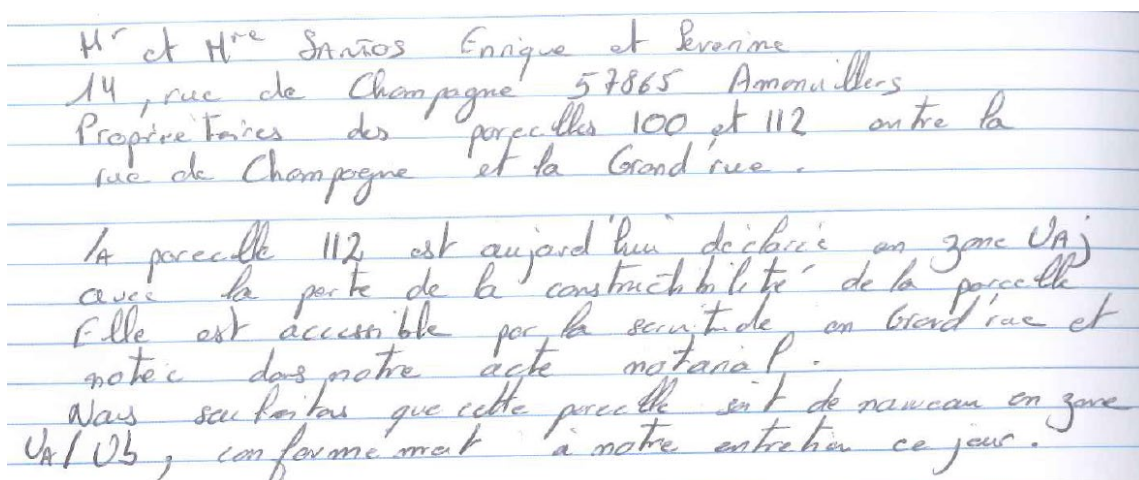 Mr et Mme SANTOS Enrique et Severine
14, rue de Champagne 57865 Amanvillers
Propriétaires des parcelles 100 et 112 entre la
rue de Champagne et la Grand'rue.
LA parcelle 112 est aujourd'hui déclarée en zone UAj
avec la perte de la constructibilité de la parcelle
Elle est accessible par la servitude en Grand'rue et
notée dans notre acte notarial.
Nous souhaitons que cette parcelle soit de nouveau en zone
UA/Ub, conformément à notre entretien ce jour.